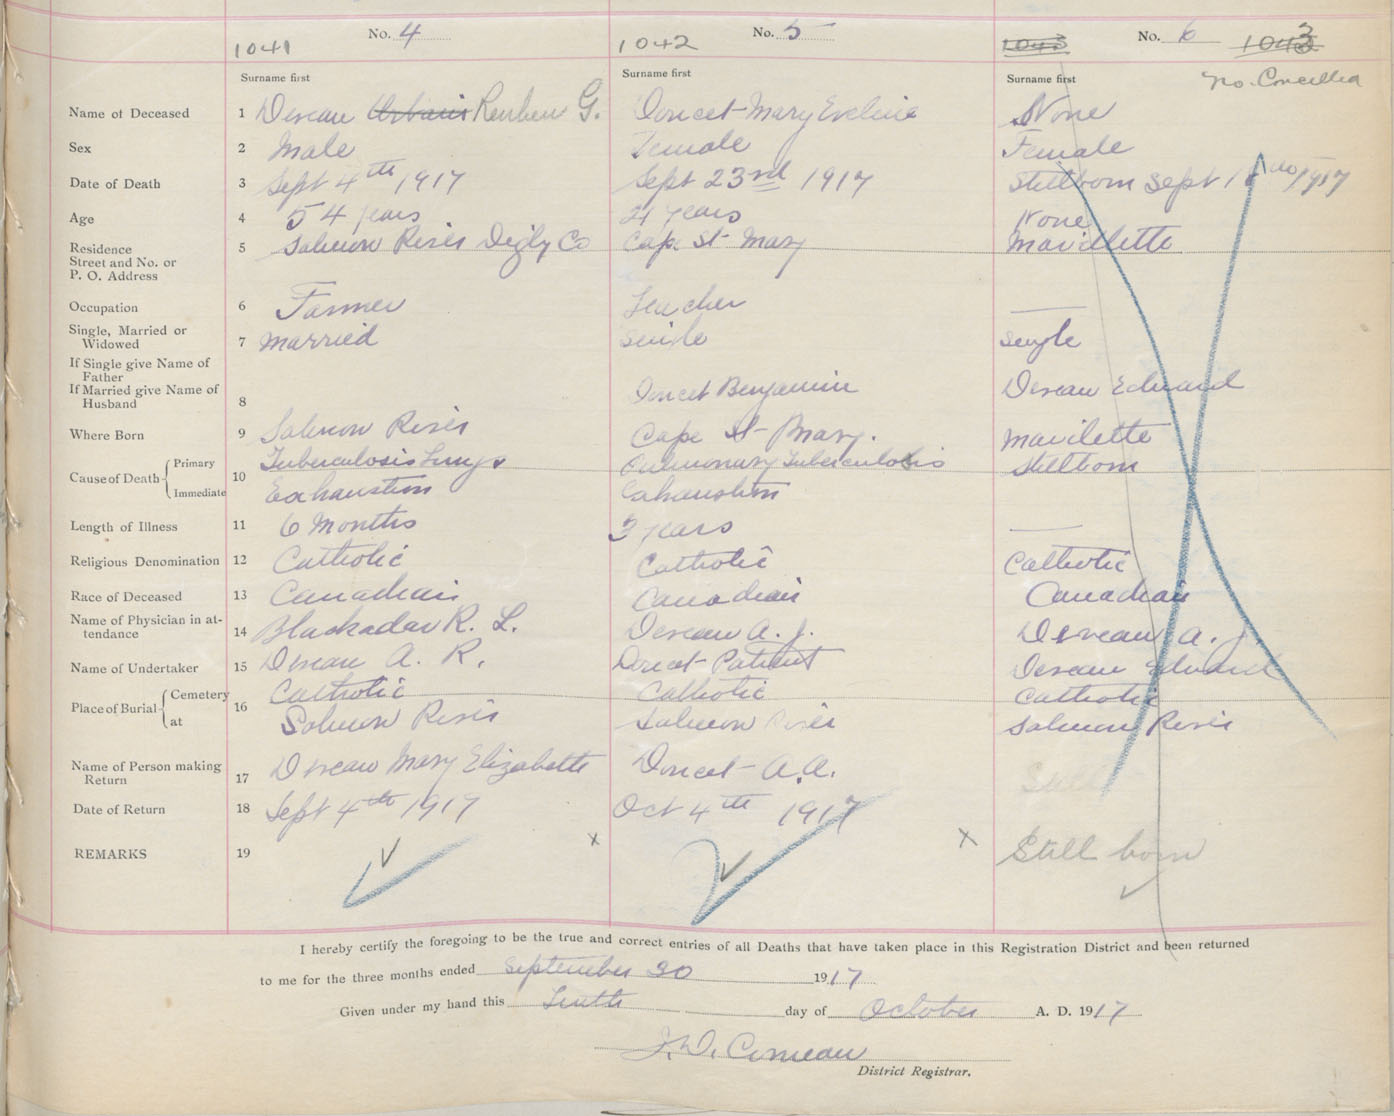 1041 No. 4 1042 No. 5 1043 No. 6 1043
Surname first Surname first Surname first No. Cancelled
Name of Deceased 1 Deveau Urbain Reuben G. Doucet Mary Eveline None
Sex 2 Male Female Female
Date of Death 3 Sept 4th 1917 Sept 23rd 1917 Stillborn Sept 1917
Age 4 54 years 21 years None
Residence Street and No. or P. O. Address 5 Salmon River Digby Co Cape St Mary Mavillette
Occupation 6 Farmer Teacher
Single, Married or Widowed 7 Married Single Single
If Single give Name of Father
If Married give Name of Husband 8 Doucet Benjamin Deveau Edward
Where Born 9 Salmon River Cape St Mary. Mavilette
Cause of Death { Primary 10 Tuberculosis Lungs Pulmonary Tuberculosis Stillborn
Immediate Exhaustion Exhaustion
Length of Illness 11 6 Months 3 years
Religious Denomination 12 Catholic Catholic Catholic
Race of Deceased 13 Canadian Canadian Canadian
Name of Physician in attendance 14 Blackadar R. L. Deveau A. J. Deveau A. J.
Name of Undertaker 15 Deveau A. R. Doucet Deveau Edward
Place of Burial { Cemetery 16 Catholic Catholic Catholic
at Salmon River Salmon River Salmon River
Name of Person making Return 17 Deveau Mary Elizabeth Doucet A. A. Still
Date of Return 18 Sept 4th 1917 Oct 4th 1917
REMARKS 19 x x Still born
I hereby certify the foregoing to be the true and correct entries of all Deaths that have taken place in this Registration District and been returned
to me for the three months ended September 30 1917
Given under my hand this Tenth day of October A. D. 1917
J. W. Comeau
District Registrar.